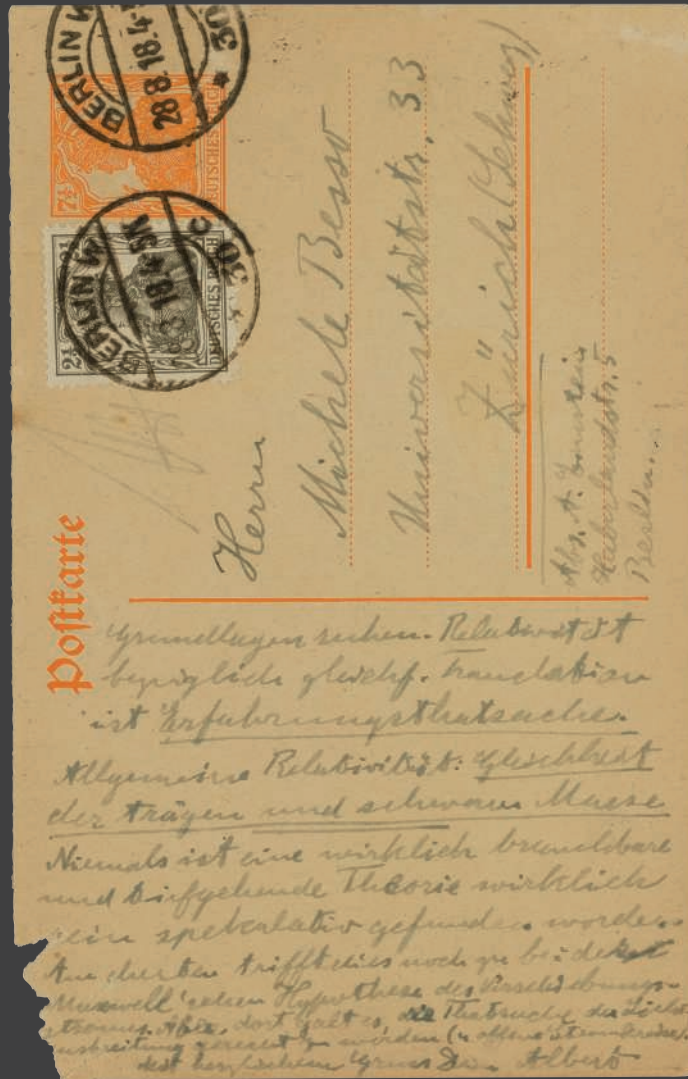 BERLIN W
28.8.18.4-5
* 30
7½
DEUTSCHES REICH
BERLIN W
28.8.18.4-5N
* 30 c
2½
2½
DEUTSCHES REICH
Postkarte
Herrn
Michele Besso
Universitätstr. 33
Zürich (Schweiz)
Abs. A. Einstein
Haberlandstr. 5
Berlin.
Grundlagen suchen. Relativität
bezüglich gleichf. Translation
ist Erfahrungsthatsache.
Allgemeine Relativität: Gleichheit
der trägen und schweren Masse
Niemals ist eine wirklich brauchbare
und tiefgehende Theorie wirklich
rein spekulativ gefunden worden.
Am ehesten trifft dies noch zu bei der
Maxwell'schen Hypothese des Verschiebungs-
stromes. Aber dort galt es, die Thatsache der Licht-
ausbreitung gerecht zu werden (u offene Stromkreise).
Mit herzlichem Gruss Dein Albert